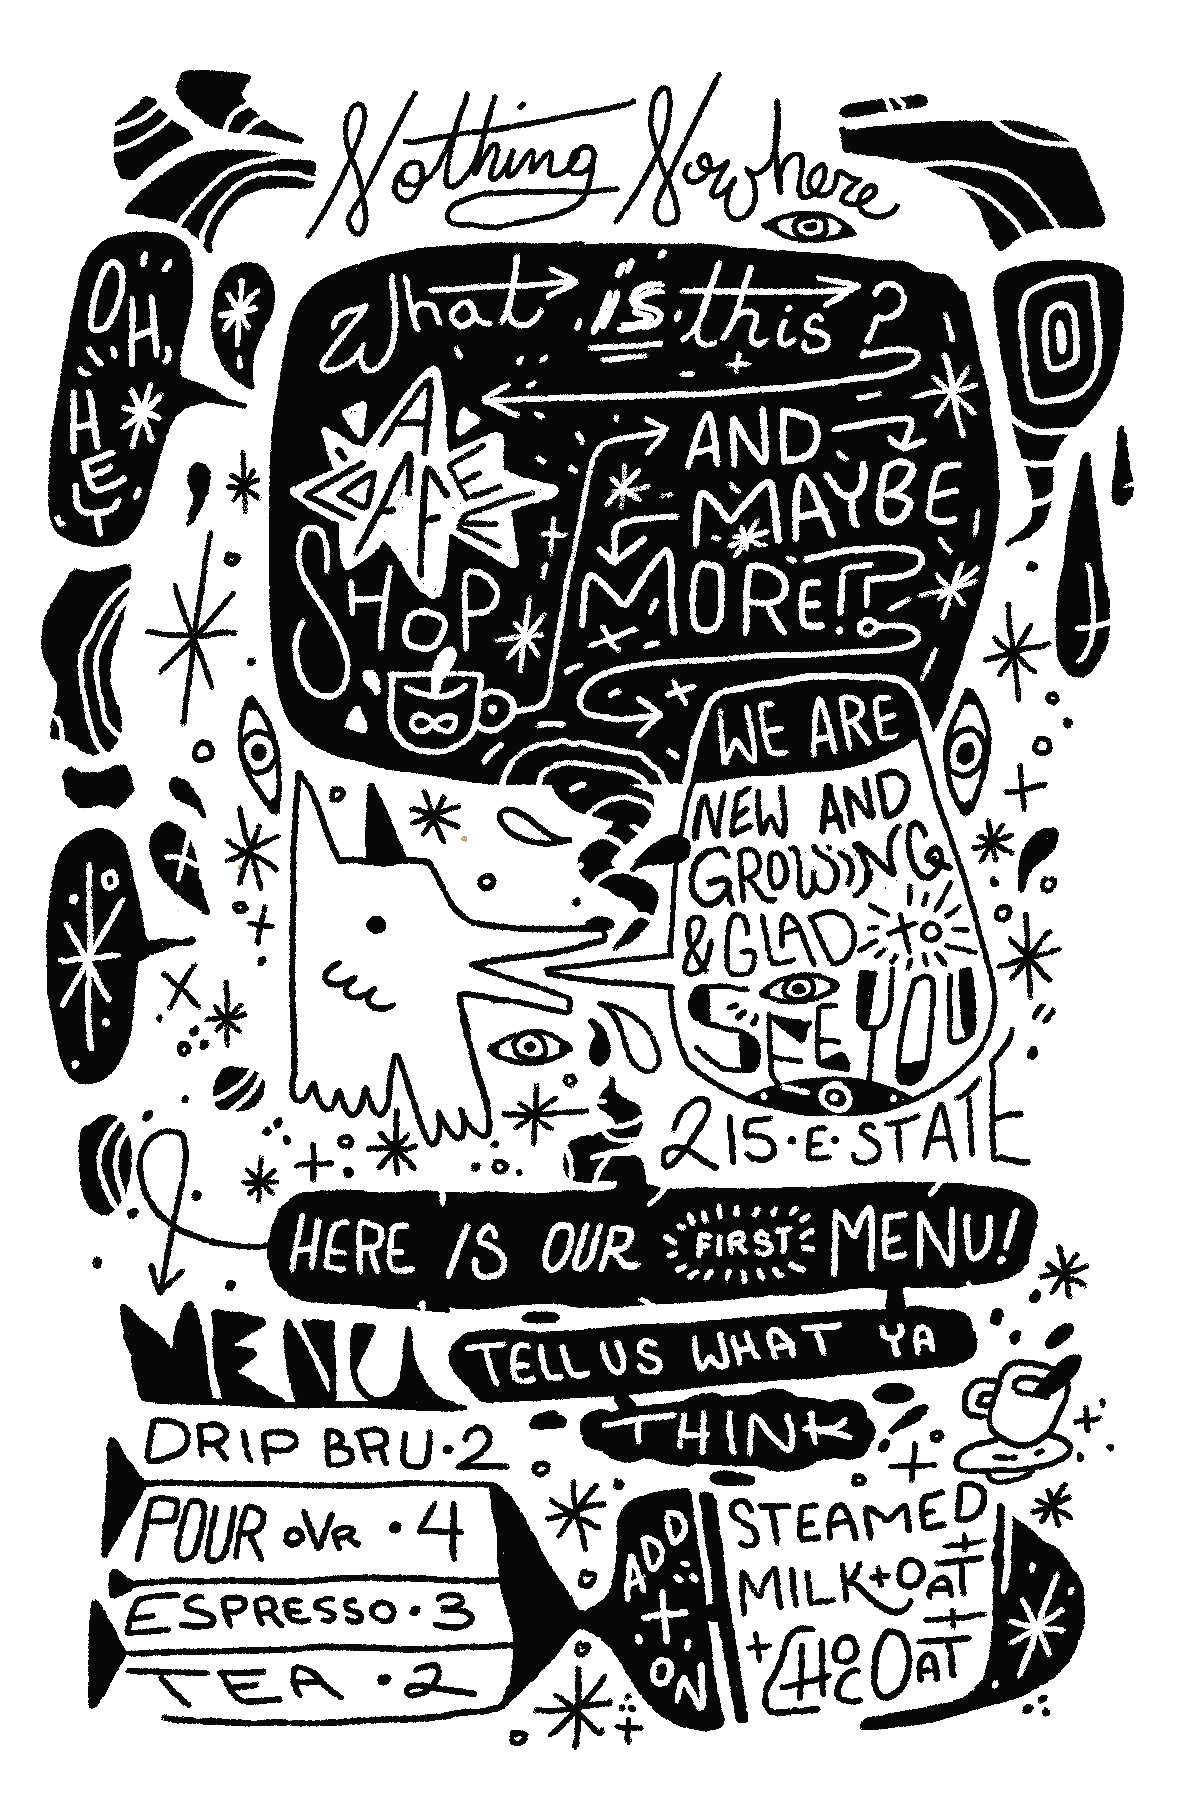 Nothing Nowhere
OH
HEY
What is this?
A
CAFE
SHOP
AND
MAYBE
MORE!?
WE ARE
NEW AND
GROWING
& GLAD to
SEE YOU
215·E·STATE
HERE IS OUR FIRST MENU!
MENU
TELL US WHAT YA
THINK
DRIP BRU·2
POUR OVR·4
ESPRESSO·3
TEA·2
ADD
+
ON
STEAMED
MILK+OAT
+CHOCOAT